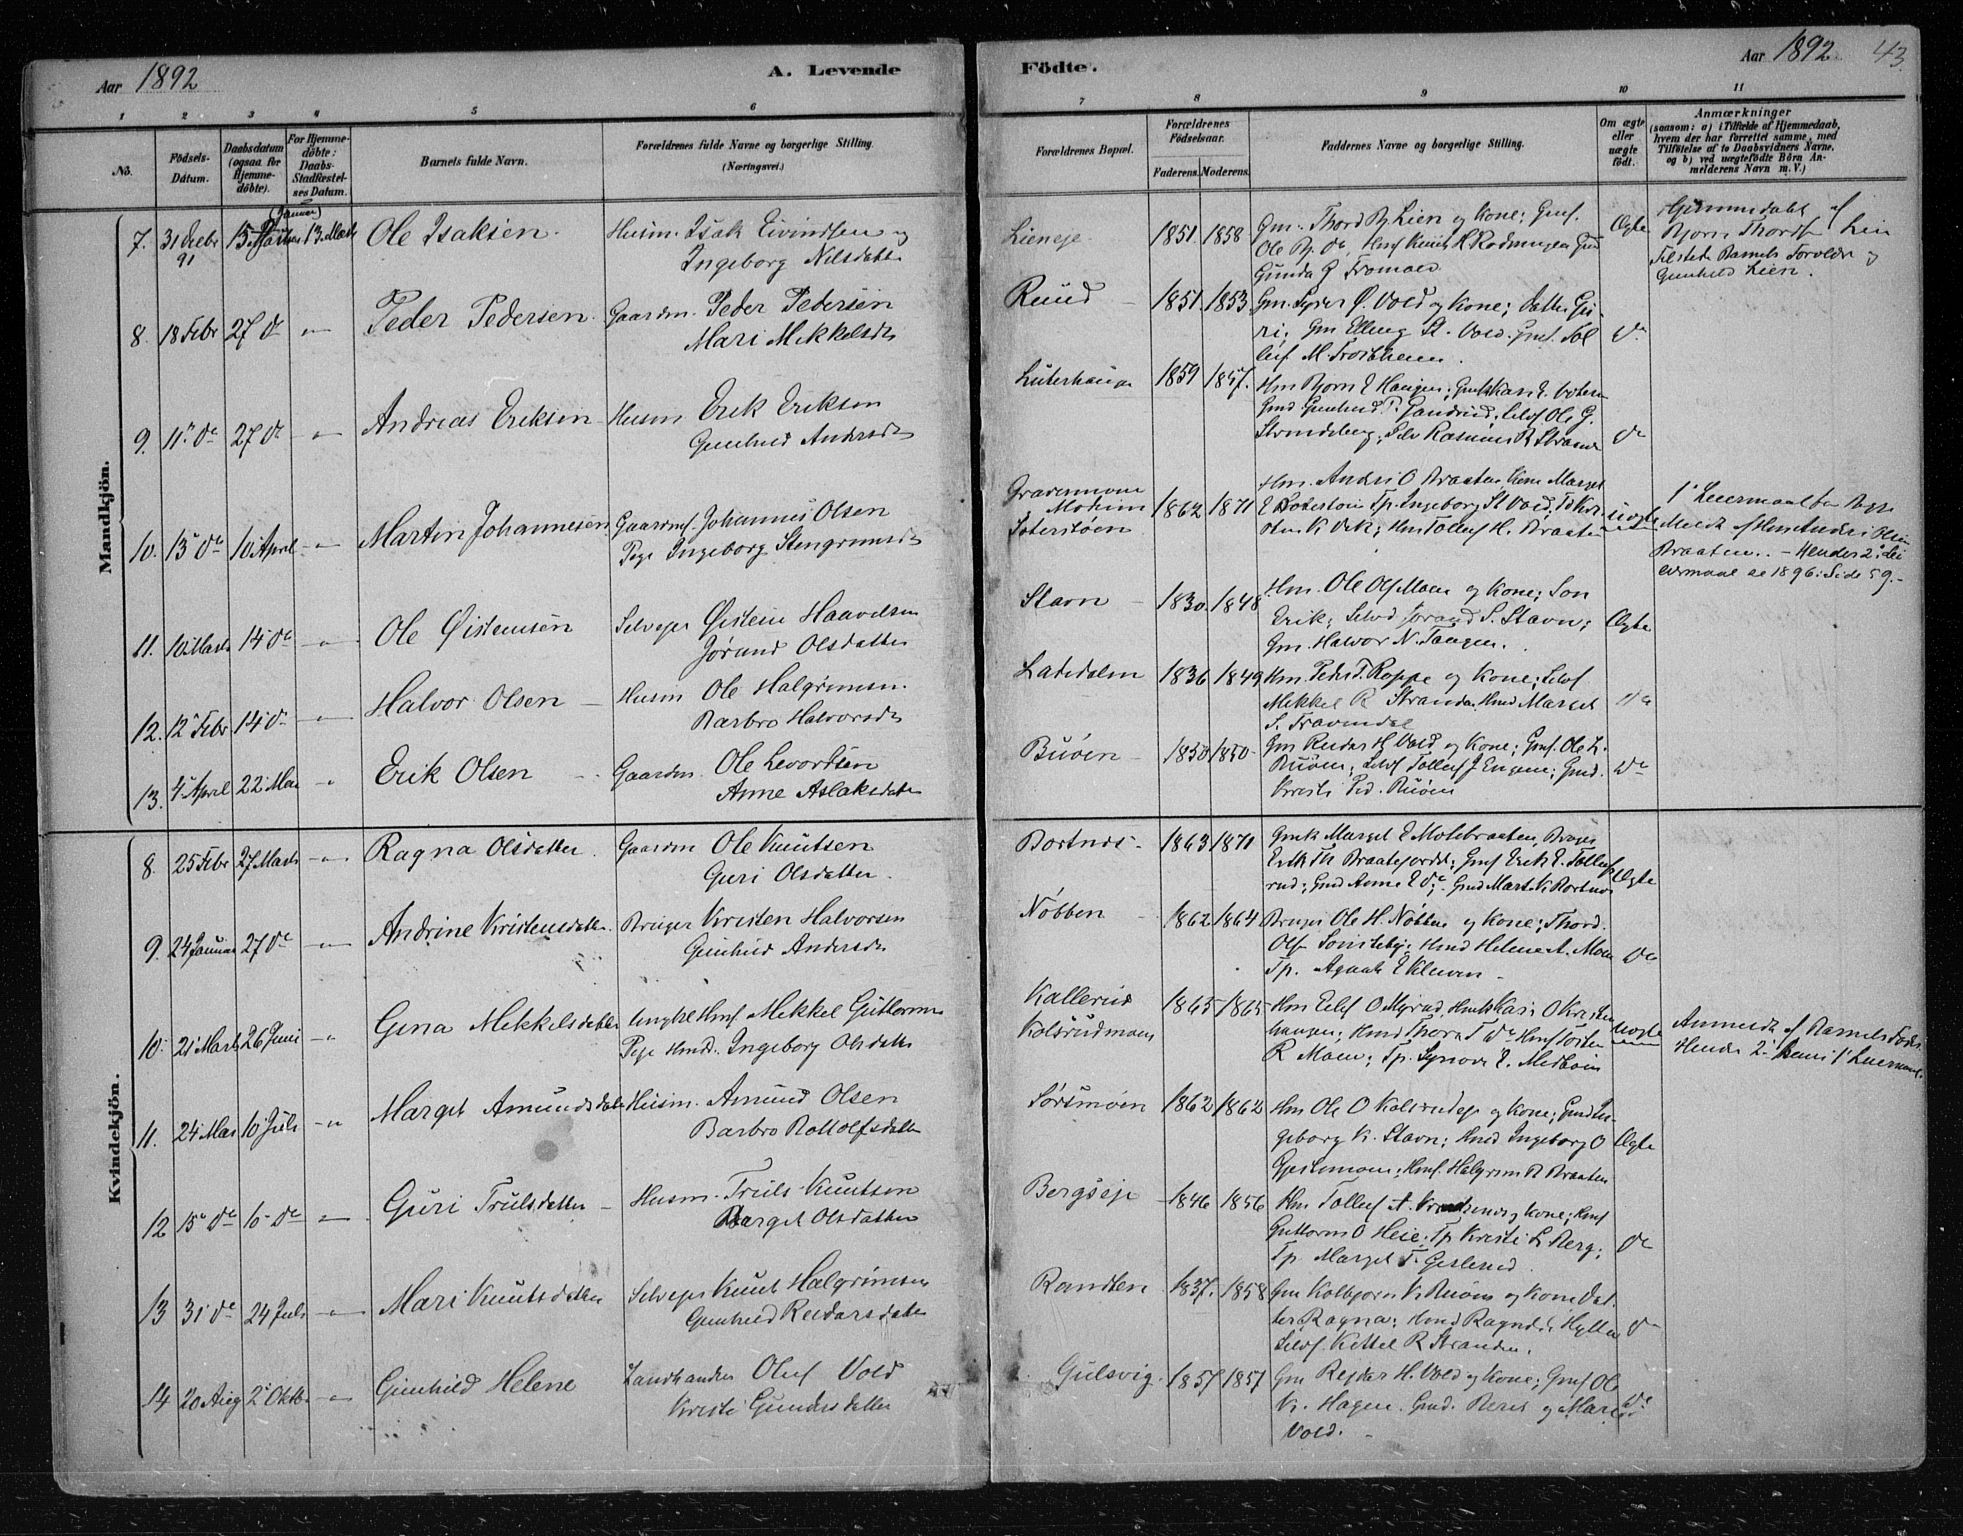 Aar 1892
A. Levende
Födte.
Aar 1892
43.
1 2 3 4 5 6 7 8 9 10 11
No.
Födsels-
Datum.
Daabsdatum
(ogsaa for
Hjemme-
döbte).
For Hjemme-
döbte:
Daabs-
Stadfæstel-
ses Datum.
Barnets fulde Navn.
Forældrenes fulde Navne og borgerlige Stilling.
(Næringsvei.)
Forældrenes Bopæl.
Forældrenes
Födselsaar.
Faderens. Moderens.
Faddernes Navne og borgerlige Stilling.
Om ægte
eller
uægte
födt.
Anmærkninger
(saasom: a) i Tilfælde af Hjemmedaab,
hvem der har forrettet samme, med
Tilföielse af to Daabsvidners Navne,
og b) ved uægtefödte Börn An-
melderens Navn m. V.)
Mandkjön.
7. 31 Decbr 91 (Januar) 13 Marts Ole Isaksen. Husm. Isak Eivindsen og
Ingeborg Nilsdatter
Lieneje 1851 1858 Gm. Thord Bj. Lien og Kone; Gmf.
Ole Bj. do, Hmf Knut H. Rodningen Gmd
Gunda G
Ægte
Hjemmedøbt af
Bjørn Thords. Lien
Tilstede Barnets Forældre og
Gunhild Lien.
8. 18 Febr 27 do Peder Pedersen. Gaardm. Peder Pedersen
Mari Mikkelsdr
Ruud 1851. 1853. Gm. Syver Ø. Vold og Kone; Datter Gu-
ri; Gm Elling St. Vold. Gmf. Tol
lef M. Trostheim.
do
9. 11 do 27 do Andreas Eriksen Husm Erik Eriksen
Gunhild Andersdr
1859 1857. Hm Bjørn E Haugen; Kari E.
Gmd Gunhild P. Gandrud; Selvf Ole G.
Strandeberg; Selv Rasmus R Strande
do
10. 15 do 10 April Martin Johannesen Gaardmf. Johannes Olsen
Pige Ingeborg Stengrimsdr
Gravermoen
Modum
1862 1871 Hm. Anders O Braaten Kone Marget
Tp. Ingeborg St Vold,
Hm Tollef H. Braaten
uægte
1ste Leiermaal for Begge
Meldt af Hm Anders Olsen
Braaten. – Hendes 2det Lei
ermaal se 1896 Side 59.–
11. 10 Marts 14 do Ole Øistensen Selvejer Øistein Haavelsen
Jørund Olsdatter
Stavn 1830. 1848 Hm. Ole Ols. Moen og Kone; Søn
Erik; Selvd Jørand S. Stavn;
Gm. Halvor N. Tangen.
Ægte
12. 12 Febr 14 do Halvor Olsen Husm Ole Halgrimsen.
Barbro Halvorsdr
Ladedalen 1836 1849 Hm. Peder T. Roppe og Kone; Selvf
Mikkel R Stranden Hmd Marget
S. Travindal
do
13. 4 April 22 Mai Erik Olsen Gaardm. Ole Levordsen
Anne Aslaksdatter
Buøen 1850 1850 Gm Reidar H Vold og Kone; Gmf. Ole L.
Buøen; Selvf Tollef J Engene; Gmd.
Kristi Ped. Buøen
do
Kvindekjön.
8. 25 Febr 27 Marts Ragna Olsdatter. Gaardm Ole Knutsen
Guri Olsdatter.
Bortnes 1863 1871 Gmk Marget E Molebraaten, Bruger
Erik Th Braategjordet; Gmf Erik E. Tollefs
rud; Gmd Anne E do; Gmd Marit K. Bortnes
Ægte
9. 24 Januar 27 do Andrine Kristensdatter. Bruger Kristen Halvorsen
Gunhild Andersdr
Nøbben 1862 1864 Bruger Ole H. Nøbben og Kone; Thord.
Ols Hmd Helene A. Moen
Tp. Agaate E Kleven
do
10. 21 Marts 26 Juni Gina Mikkelsdatter Ungkl Hmf. Mikkel Guttormsen
Pige Hmd. Ingeborg Olsdatter
Kallerud
Kolsrudmoen
1865 1865 Hm Eilef O Myrud, Kari O
haugen; Hmd Thora T do Hmf Tosten
R Moen; Tp. Synove E. Medboen
uægte
Anmeldt af Barnets Fader
Hendes 2det hans 1ste Leiermaal.
11. 24 Mai 10 Juli Marget Amundsdatter Husm. Amund Olsen
Barbro Botolfsdatter
Sørsmoen 1862 1862 Hm Ole O Kolsrudeje og Kone; Gmd In-
geborg K. Stavn; Hmd Ingeborg O
Hmf. Halgrim B Braaten
Ægte
12 15 do 10 do Guri Trulsdatter Husm. Truls Knutsen
Barget Olsdatter
Bergseje 1846 1856 Hm Tollef A. og Kone; Hmf
Guttorm O Heie; Tp Kristi L Berg;
Tp. Marget T. Geslerud.
do
13 31 do 24 Juli Mari Knutsdatter Selvejer Knut Halgrimsen
Gunhild Reidarsdatter
Randlen 1837. 1858 Gm Kolbjørn K. Buøen og Kone Dat-
ter Ragna; Hmd Ragnd. Hylla
Selvf. Kittel R Stranden.
do
14 20 Aug 2 Oktbr Gunhild Helene Landhandler Oluf Vold
Kristi Gundersdatter
Gulsvig. 1857 1857 Gm Reidar H. Vold og Kone; Gmf Ole
K. Hagen. Gmd. Beret og Mari
Vold.
do